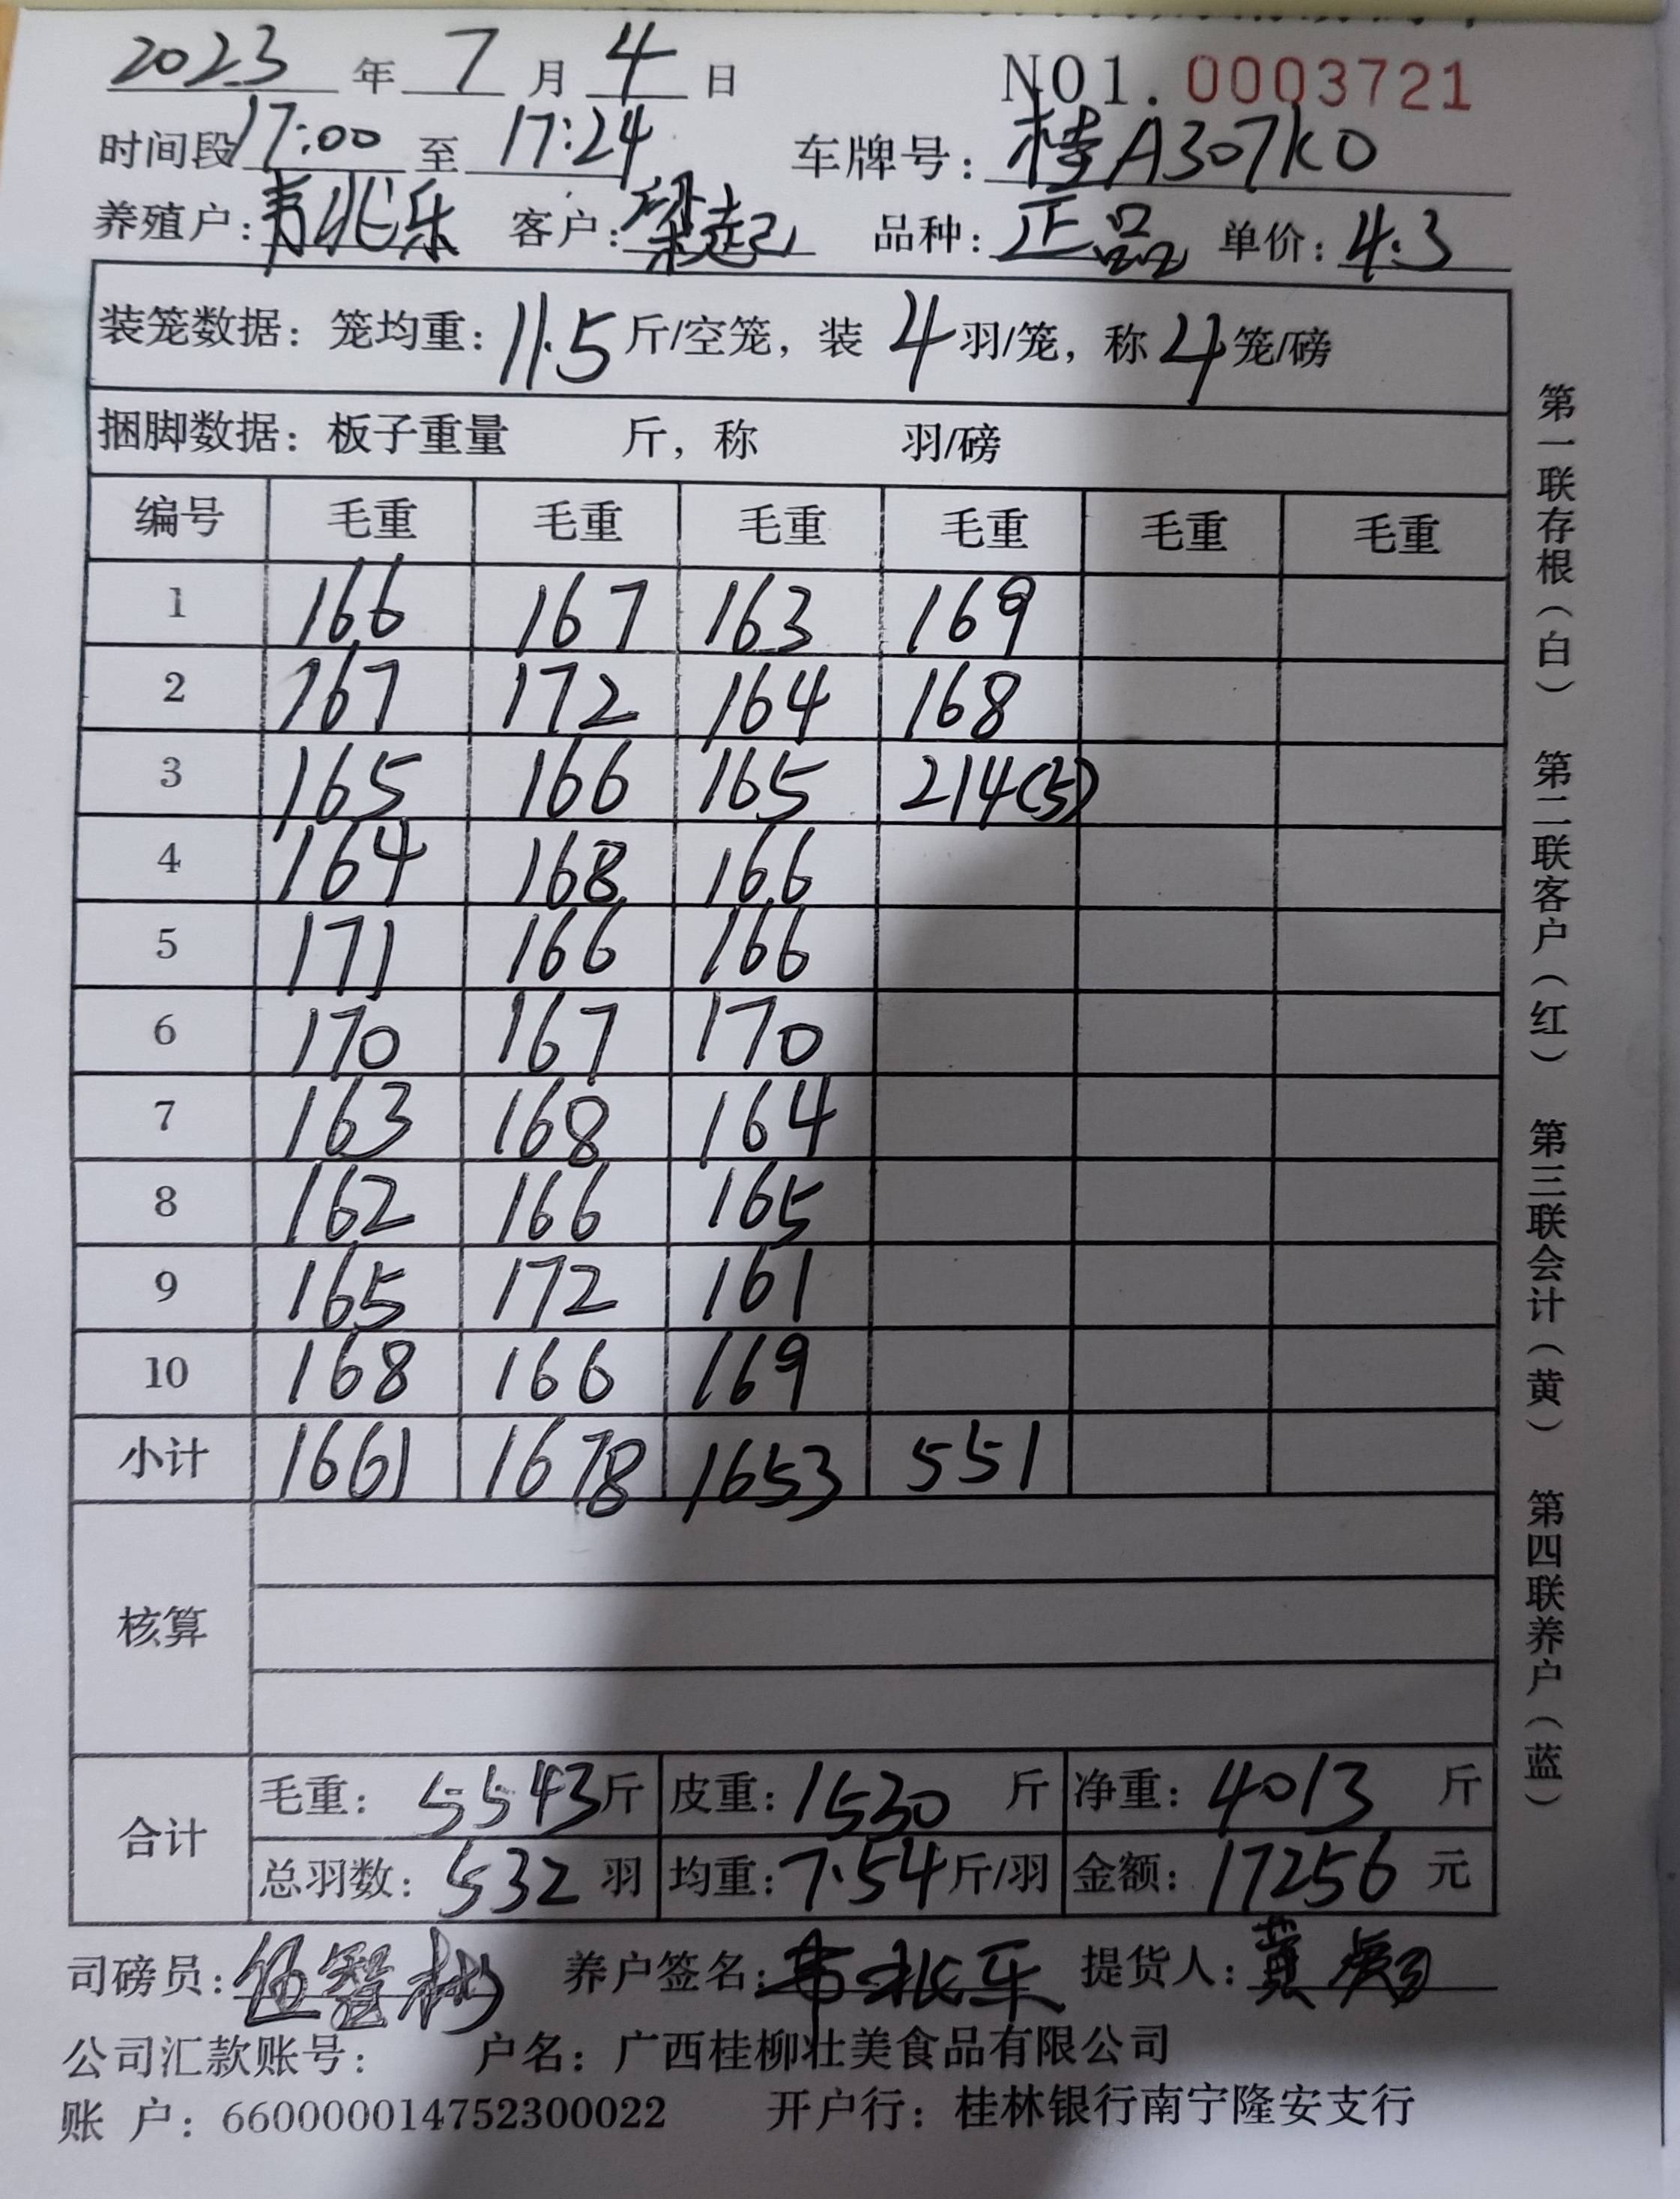 2023 年 7 月 4 日 NO1. 0003721
时间段 17:00 至 17:24 车牌号: 桂A307K0
养殖户: 韦兆乐 客户: 梁起 品种: 正品 单价: 4.3
装笼数据: 笼均重: 11.5 斤/空笼, 装 4 羽/笼, 称 4 笼/磅
捆脚数据: 板子重量 斤, 称 羽/磅
编号 毛重 毛重 毛重 毛重 毛重 毛重
1 166 167 163 169
2 167 172 164 168
3 165 166 165 214(5)
4 164 168 166
5 171 166 166
6 170 167 170
7 163 168 164
8 162 166 165
9 165 172 161
10 168 166 169
小计 1661 1678 1653 551
核算
合计 毛重: 5543 斤 皮重: 1530 斤 净重: 4013 斤
总羽数: 532 羽 均重: 7.54 斤/羽 金额: 17256 元
司磅员: 伍智彬 养户签名: 韦兆乐 提货人: 黄
公司汇款账号: 户名: 广西桂柳壮美食品有限公司
账 户: 660000014752300022 开户行: 桂林银行南宁隆安支行
第一联存根(白) 第二联客户(红) 第三联会计(黄) 第四联养户(蓝)